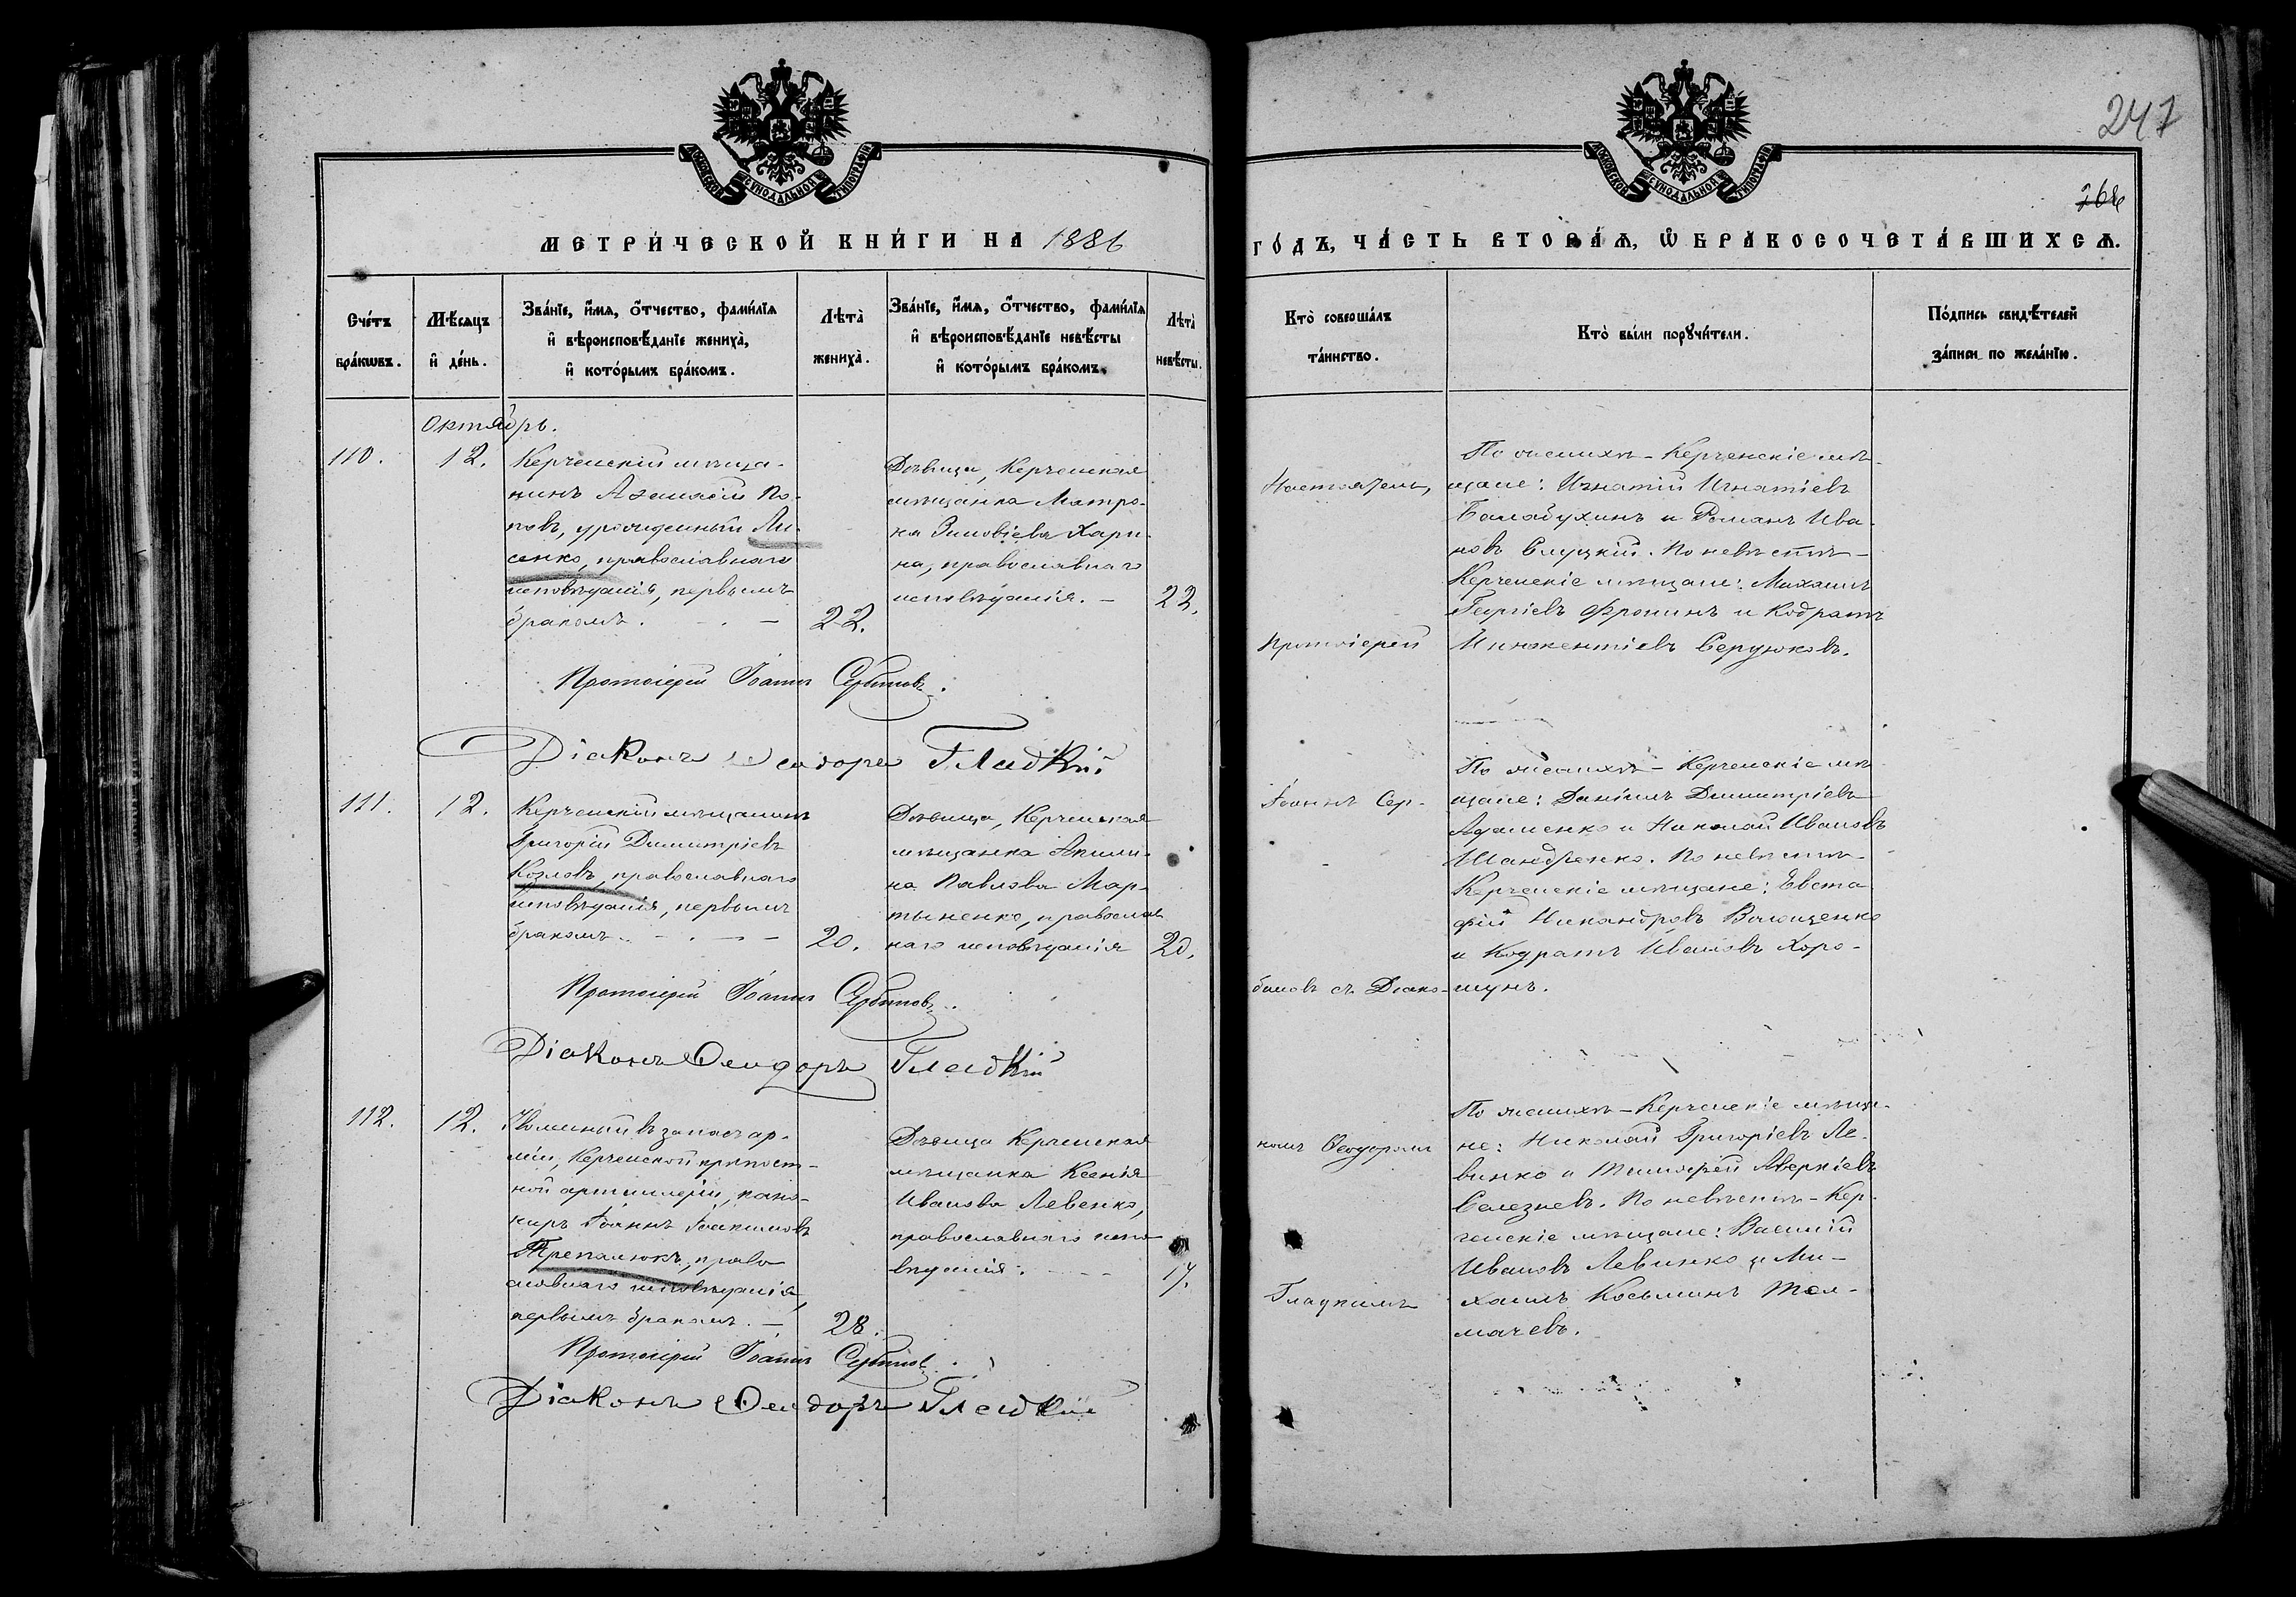 247
264
МЕТРИЧЕСКОЙ КНИГИ НА 1886
ГОДЪ, ЧАСТЬ ВТОРАѦ, Ѡ БРАКОСОЧЕТАВШИХСѦ.
МОСКОВСКОЙ СѴНОДАЛЬНОЙ ТИПОГРАФІИ
МОСКОВСКОЙ СѴНОДАЛЬНОЙ ТИПОГРАФІИ
Счетъ
бракѡвъ.
Мѣсяцъ
и день.
Званіе, имѧ, отчество, фамиліѧ
и вѣроисповѣданіе жениха,
и которымъ бракомъ.
Лѣта
жениха.
Званіе, имѧ, отчество, фамиліѧ
и вѣроисповѣданіе невѣсты
и которымъ бракомъ.
Лѣта
невѣсты.
Кто совершалъ
таинство.
Кто были порꙋчители.
Подпись свидѣтелей
записи по желанію.
Октябрь.
110.
12.
Керченскій мѣща-
нинъ Аѳанасій По-
повъ, урожденный Ли-
сенко, православнаго
исповѣданія, первымъ
бракомъ. —
22.
Дѣвица, Керченская
мѣщанка Матро-
на Зиновіева Хари-
на, православнаго
исповѣданія. —
22.
Настоятель,
Протоіерей
По женихѣ - Керченскіе мѣ-
щане: Игнатій Игнатіевъ
Балабухинъ и Романъ Ива-
новъ Слуцкій. По невѣстѣ -
Керченскіе мѣщане: Михаилъ
Георгіевъ Фронинъ и Кодратъ
Иннокентіевъ Сердюковъ.
Протоіерей Іоаннъ Сербиновъ.
Діаконъ Ѳеодоръ Гладкій
111.
12.
Керченскій мѣщанинъ
Григорій Димитріевъ
Козловъ, православнаго
исповѣданія, первымъ
бракомъ. —
20.
Дѣвица, Керченская
мѣщанка Акили-
на Павлова Мар-
тыненко, православ
наго исповѣданія
20.
Іоаннъ Сер-
биновъ съ Діако-
По женихѣ - Керченскіе мѣ
щане: Даніилъ Димитріевъ
Адаменко и Николай Ивановъ
Шандренко. По невѣстѣ -
Керченскіе мѣщане: Евста
фій Никандровъ Волощенко
и Кодратъ Ивановъ Хоро-
шунъ.
Протоіерей Іоаннъ Сербиновъ.
Діаконъ Ѳеодоръ Гладкій
112.
12.
Уволенный въ запасъ ар-
міи, Керченской крѣпост-
ной артиллеріи, кано-
ниръ Іоаннъ Іоакимовъ
Трепалюкъ, право
славнаго исповѣданія,
первымъ бракомъ. —
28.
Дѣвица Керченская
мѣщанка Ксенія
Иванова Левенко,
православнаго испо
вѣданія.
17.
номъ Ѳеодоромъ
Гладкимъ
По женихѣ - Керченскіе мѣща-
не: Николай Григорьевъ Ле-
винко и Тимофей Аверкіевъ
Селезневъ. По невѣстѣ - Кер-
ченскіе мѣщане: Василій
Ивановъ Левинко и Ми-
хаилъ Косьминъ Тол-
мачевъ.
Протоіерей Іоаннъ Сербинов.
Діаконъ Ѳеодоръ Гладкій